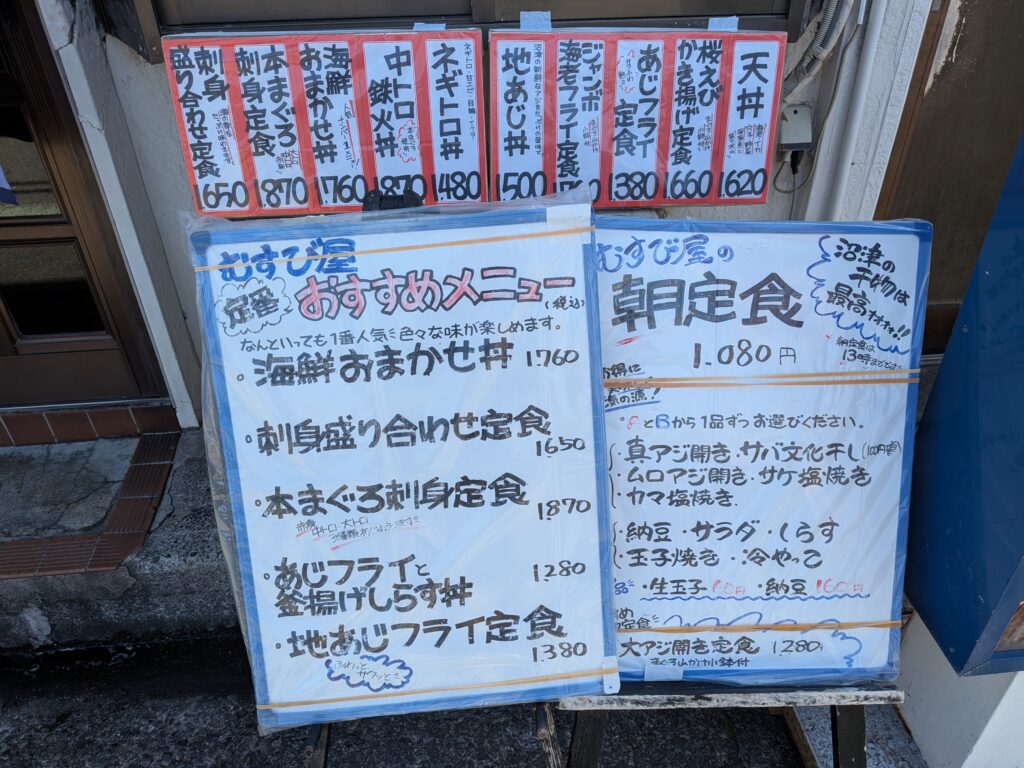 天丼
1.620
桜えび
かき揚げ定食
1.660
あじフライ
定食
1.380
ジャンボ
海老フライ定食
沼津の新鮮なアジを
地あじ丼
1.500
ネギトロ丼
1.480
中トロ
鉄火丼
1.870
海鮮
おまかせ丼
1.760
本まぐろ
刺身定食
1.870
刺身
盛り合わせ定食
1.650
むすび屋
定番
おすすめメニュー
(税込)
なんといっても1番人気!色々な味が楽しめます。
・海鮮おまかせ丼 1.760
・刺身盛り合わせ定食
1.650
・本まぐろ刺身定食
1.870
・あじフライと
釜揚げしらす丼
1.280
・地あじフライ定食
1.380
むすび屋の
朝定食
1.080円
沼津の
干物は
最高ォォォ!!
朝定食は
13時までです
AとBから1品ずつお選びください。
・真アジ開き・サバ文化干し
・ムロアジ開き・サケ塩焼き
・カマ塩焼き
・納豆・サラダ・しらす
・玉子焼き・冷やっこ
・生玉子 60円 ・納豆 160円
大アジ開き定食 1.280
まぐろ山かけ小鉢付